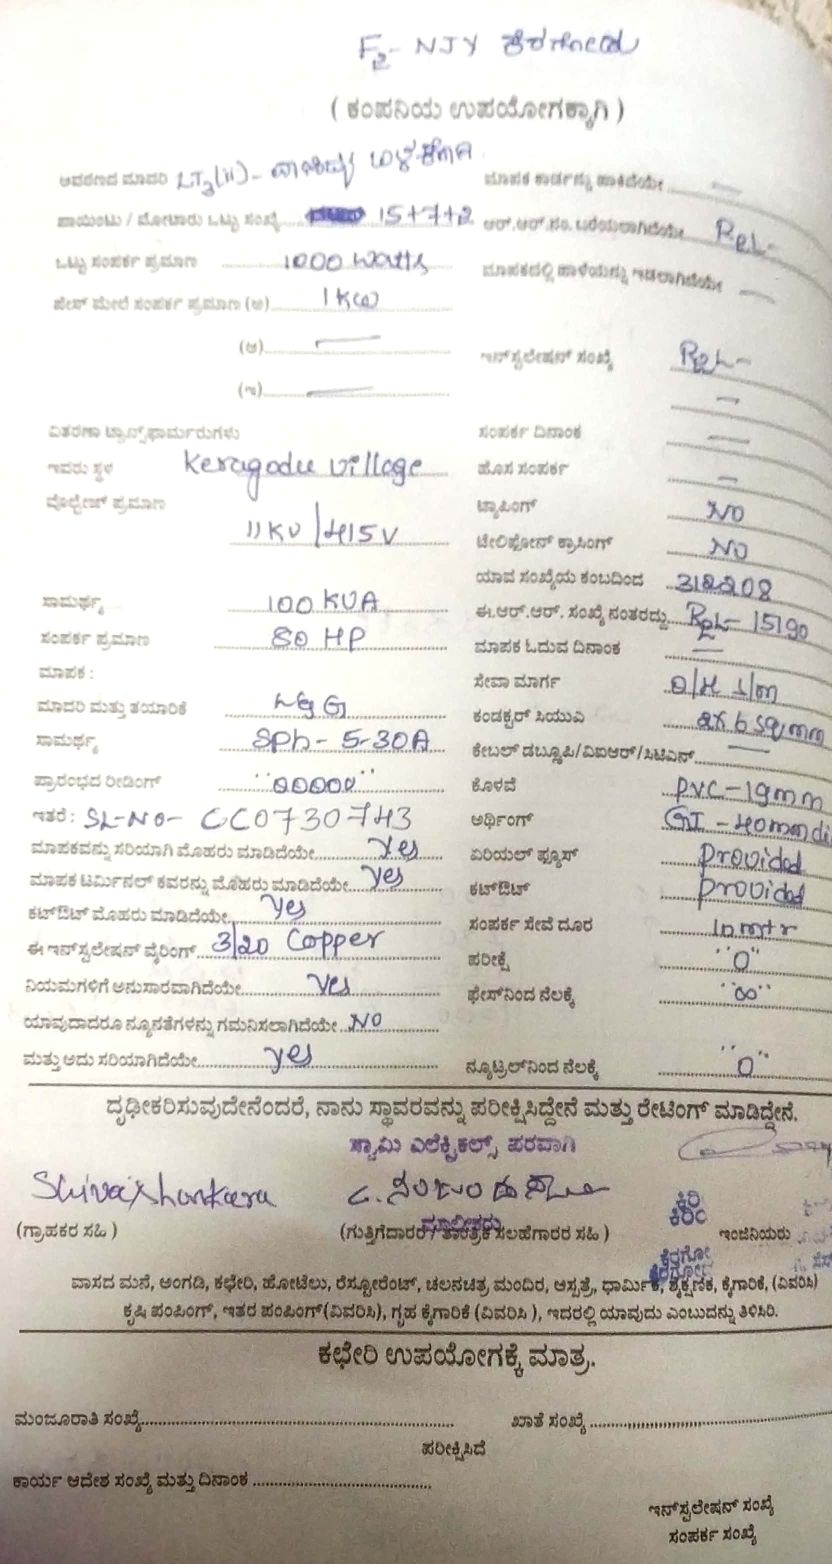 F2- NJY ಕೆರಗೋಡು
( ಕಂಪನಿಯ ಉಪಯೋಗಕ್ಕಾಗಿ )
ಆವರಣದ ಮಾದರಿ LT3(ii)- ವಾಣಿಜ್ಯ ಬಳಕೆಗಾಗಿ ಮಾಪಕ ಕಾರ್ಡನ್ನು ಹಾಕಿದೆಯೇ
ಪಾಯಿಂಟು / ಮೋಟಾರು ಒಟ್ಟು ಸಂಖ್ಯೆ 15+7+2 ಆರ್.ಆರ್.ನಂ. ಬರೆಯಲಾಗಿದೆಯೇ RPL-
ಒಟ್ಟು ಸಂಪರ್ಕ ಪ್ರಮಾಣ 1000 Watts ಮಾಪಕದಲ್ಲಿ ಹಾಳೆಯನ್ನು ಇಡಲಾಗಿದೆಯೇ
ಫೇಸ್ ಮೇಲೆ ಸಂಪರ್ಕ ಪ್ರಮಾಣ (ಅ) 1 KW
(ಆ) ಇನ್‌ಸ್ಟಲೇಷನ್ ಸಂಖ್ಯೆ RPL-
(ಇ)
ವಿತರಣಾ ಟ್ರಾನ್ಸ್‌ಫಾರ್ಮರುಗಳು ಸಂಪರ್ಕ ದಿನಾಂಕ
ಇವರು ಸ್ಥಳ Keragodu village ಹೊಸ ಸಂಪರ್ಕ
ವೊಲ್ಟೇಜ್ ಪ್ರಮಾಣ ಟ್ಯಾಪಿಂಗ್ NO
11KV/415V ಟೇಲಿಫೋನ್ ಕ್ರಾಸಿಂಗ್ NO
ಯಾವ ಸಂಖ್ಯೆಯ ಕಂಬದಿಂದ 312208
ಸಾಮರ್ಥ್ಯ 100 KVA ಈ.ಆರ್.ಆರ್. ಸಂಖ್ಯೆ ನಂತರದ್ದು RPL-15190
ಸಂಪರ್ಕ ಪ್ರಮಾಣ 80 HP ಮಾಪಕ ಓದುವ ದಿನಾಂಕ
ಮಾಪಕ : ಸೇವಾ ಮಾರ್ಗ O/H L/m
ಮಾದರಿ ಮತ್ತು ತಯಾರಿಕೆ L&G ಕಂಡಕ್ಟರ್ ಸಿಯುವಿ 2x6 sqmm
ಸಾಮರ್ಥ್ಯ SPh-5-30A ಕೇಬಲ್ ಡಬ್ಲೂಪಿ/ವಿಐಆರ್/ಸಿಟಿಎಸ್
ಪ್ರಾರಂಭದ ರೀಡಿಂಗ್ "00000" ಕೊಳವೆ PVC-19mm
ಇತರೆ : SL-NO- CC0730743 ಅರ್ಥಿಂಗ್ GI-40mmdi
ಮಾಪಕವನ್ನು ಸರಿಯಾಗಿ ಮೊಹರು ಮಾಡಿದೆಯೇ Yes ಏರಿಯಲ್ ಫ್ಯೂಸ್ Provided
ಮಾಪಕ ಟರ್ಮಿನಲ್ ಕವರನ್ನು ಮೊಹರು ಮಾಡಿದೆಯೇ Yes ಕಟ್‌ಔಟ್ Provided
ಕಟ್‌ಔಟ್ ಮೊಹರು ಮಾಡಿದೆಯೇ Yes ಸಂಪರ್ಕ ಸೇವೆ ದೂರ
ಈ ಇನ್‌ಸ್ಟಲೇಷನ್ ವೈರಿಂಗ್ 3/20 Copper ಪರೀಕ್ಷೆ "0"
ನಿಯಮಗಳಿಗೆ ಅನುಸಾರವಾಗಿದೆಯೇ Yes ಫೇಸ್‌ನಿಂದ ನೆಲಕ್ಕೆ "∞"
ಯಾವುದಾದರೂ ನ್ಯೂನತೆಗಳನ್ನು ಗಮನಿಸಲಾಗಿದೆಯೇ NO
ಮತ್ತು ಅದು ಸರಿಯಾಗಿದೆಯೇ yes ನ್ಯೂಟ್ರಲ್‌ನಿಂದ ನೆಲಕ್ಕೆ "0"
ದೃಢೀಕರಿಸುವುದೇನೆಂದರೆ, ನಾನು ಸ್ಥಾವರವನ್ನು ಪರೀಕ್ಷಿಸಿದ್ದೇನೆ ಮತ್ತು ರೇಟಿಂಗ್ ಮಾಡಿದ್ದೇನೆ.
ಸ್ವಾಮಿ ಎಲೆಕ್ಟ್ರಿಕಲ್ಸ್ ಪರವಾಗಿ
Shivashankara
(ಗ್ರಾಹಕರ ಸಹಿ ) (ಗುತ್ತಿಗೆದಾರರ / ತಾಂತ್ರಿಕ ಸಲಹೆಗಾರರ ಸಹಿ ) ಇಂಜಿನಿಯರು
ಮಾಲೀಕರು
ವಾಸದ ಮನೆ, ಅಂಗಡಿ, ಕಛೇರಿ, ಹೋಟೆಲು, ರೆಸ್ಟೋರೆಂಟ್, ಚಲನಚಿತ್ರ ಮಂದಿರ, ಆಸ್ಪತ್ರೆ, ಧಾರ್ಮಿಕ, ಶೈಕ್ಷಣಿಕ, ಕೈಗಾರಿಕೆ, (ವಿವರಿಸಿ)
ಕೃಷಿ ಪಂಪಿಂಗ್, ಇತರ ಪಂಪಿಂಗ್(ವಿವರಿಸಿ), ಗೃಹ ಕೈಗಾರಿಕೆ (ವಿವರಿಸಿ ), ಇದರಲ್ಲಿ ಯಾವುದು ಎಂಬುದನ್ನು ತಿಳಿಸಿರಿ.
ಕಛೇರಿ ಉಪಯೋಗಕ್ಕೆ ಮಾತ್ರ.
ಮಂಜೂರಾತಿ ಸಂಖ್ಯೆ ಖಾತೆ ಸಂಖ್ಯೆ
ಪರೀಕ್ಷಿಸಿದೆ
ಕಾರ್ಯ ಆದೇಶ ಸಂಖ್ಯೆ ಮತ್ತು ದಿನಾಂಕ
ಇನ್‌ಸ್ಟಲೇಷನ್ ಸಂಖ್ಯೆ
ಸಂಪರ್ಕ ಸಂಖ್ಯೆ